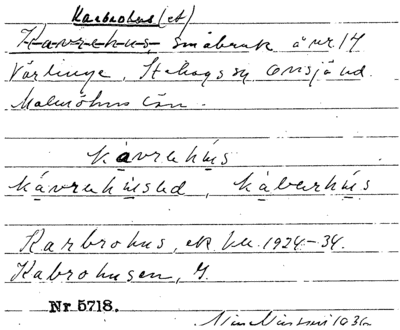 Karbrohus (et)
Kavrehus, Småbruk å nr 14
Värlinge, Stehags sn, Onsjö hd.
Malmöhus län.
kavrahus
kåvrahused, kåbarhús
Karbrohus, ek. kh. 1924-34.
Kabrohusen, G.
Nr. 5718.